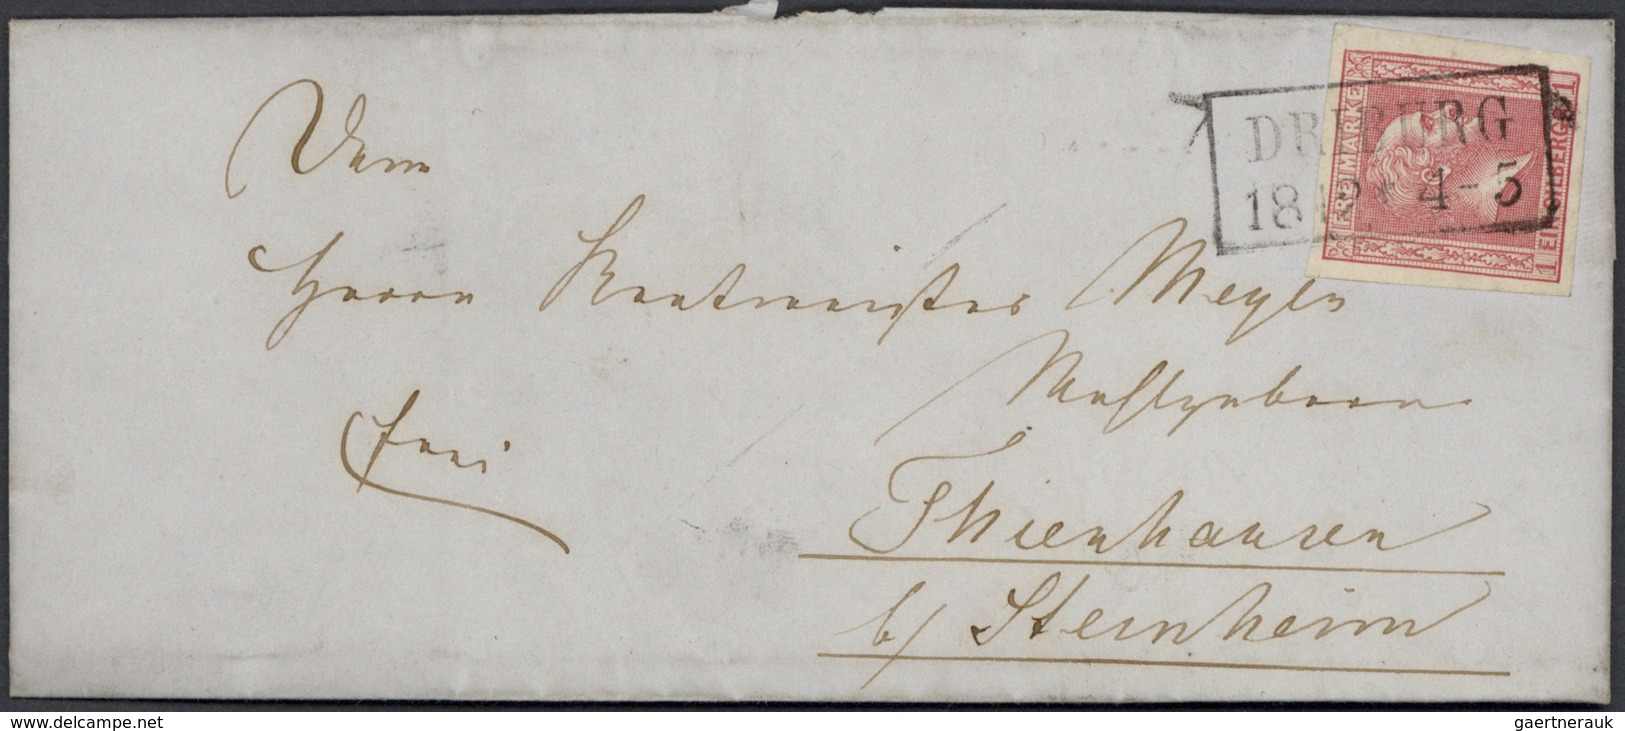 FREIMARKE
1 EIN SILBERGR. 1
DRIBURG
18 12 * 4-5
Dem
Herrn Rentmeister Meyer
Wohlgeboren
frei
Thienhausen
b/ Steinheim
www.delcampe.net
gaertnerauk